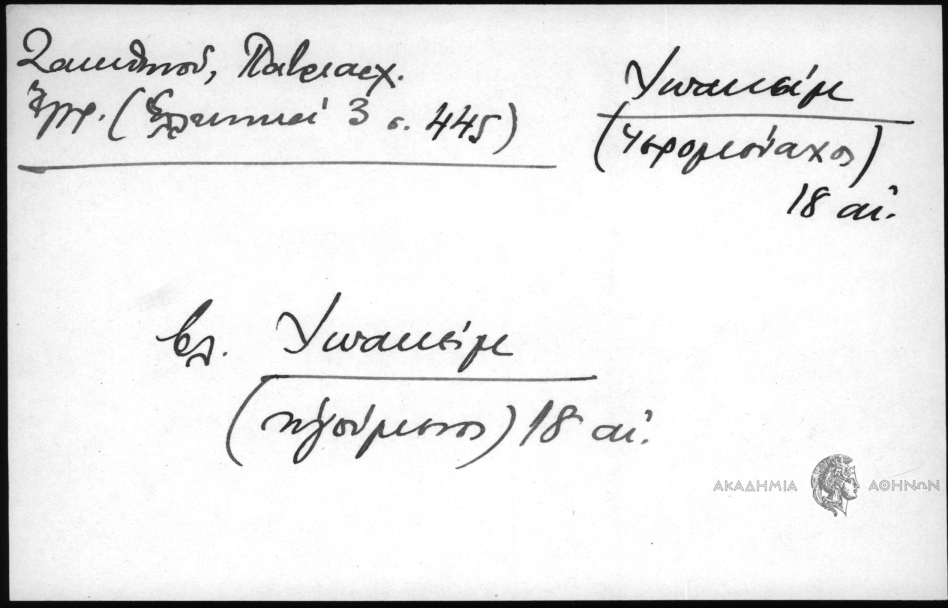 Ζακυθηνού, Πατριαρχ.
Έγγρ. (Ελληνικά 3 σ. 445)
Ιωακείμ
(ιερομόναχος)
18 αι.
βλ. Ιωακείμ
(ηγούμενος) 18 αι.
ΑΚΑΔΗΜΙΑ ΑΘΗΝΩΝ